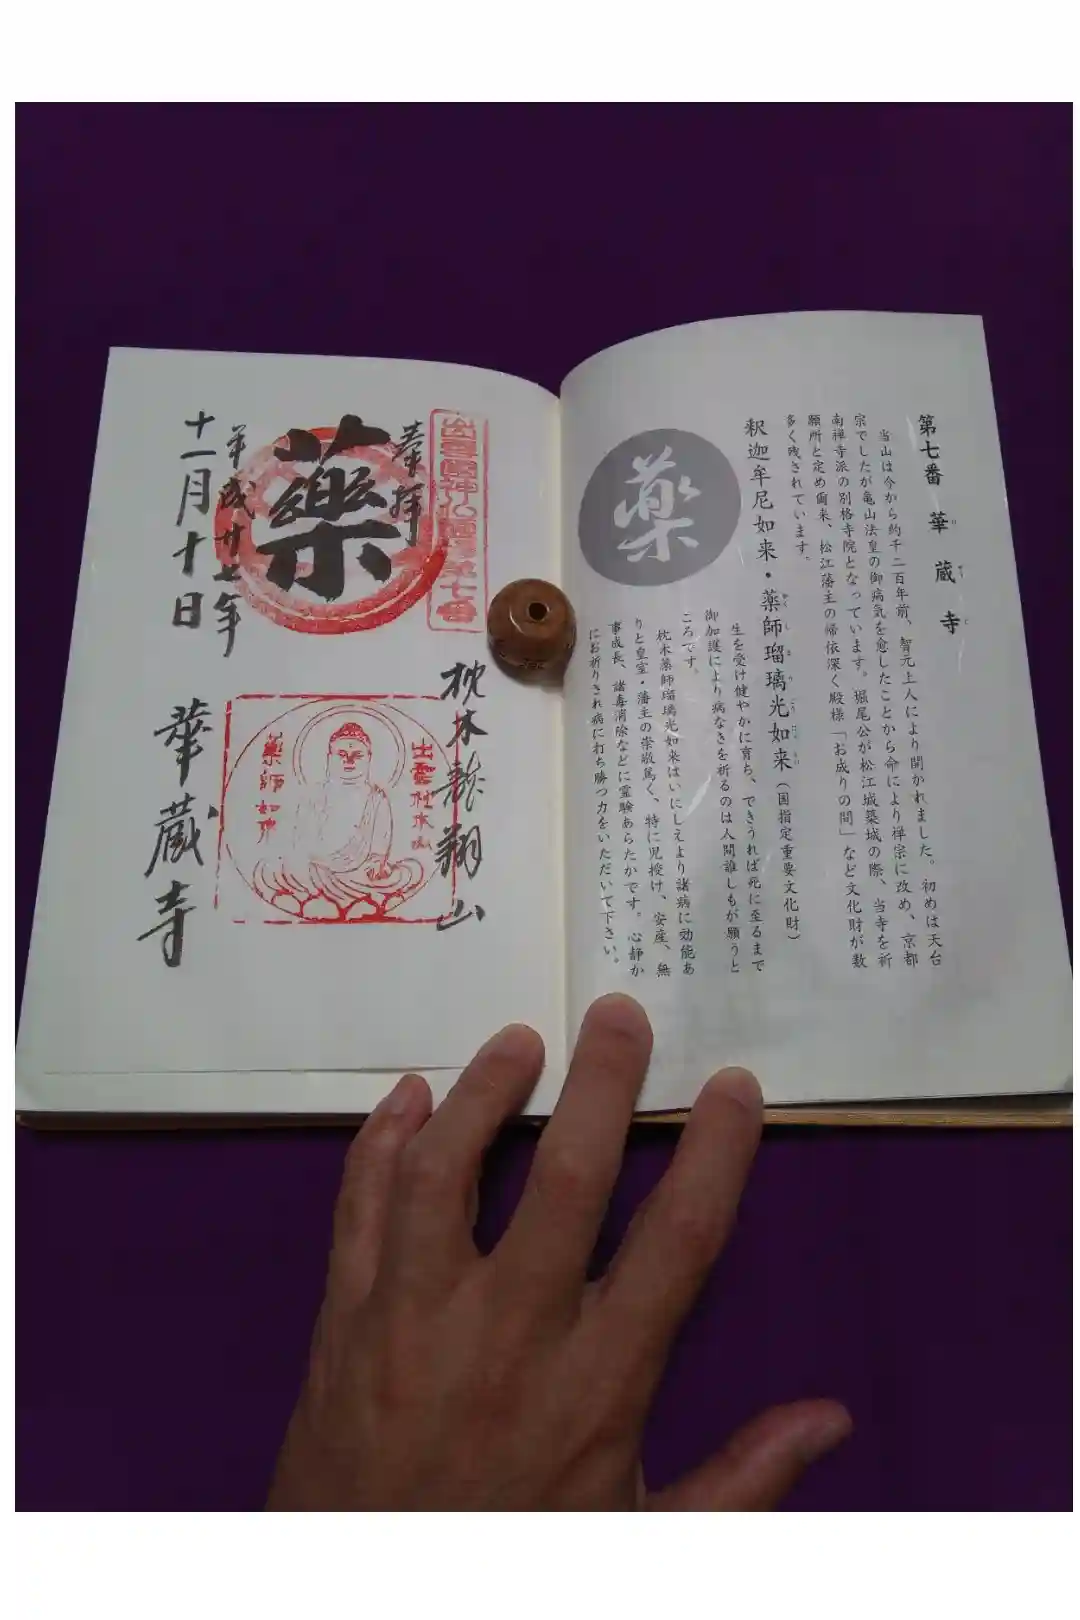 第七番 華蔵寺
け ぞう じ
当山は今から約千二百年前、智元上人により開かれました。初めは天台
宗でしたが亀山法皇の御病気を愈したことから命により禅宗に改め、京都
南禅寺派の別格寺院となっています。堀尾公が松江城築城の際、当寺を祈
願所と定め爾来、松江藩主の帰依深く殿様「お成りの間」など文化財が数
多く残されています。
釈迦牟尼如来・薬師瑠璃光如来（国指定重要文化財）
やく し る り こう にょ らい
生を受け健やかに育ち、できうれば死に至るまで
御加護により病なきを祈るのは人間誰しもが願うと
ころです。
枕木薬師瑠璃光如来はいにしえより諸病に効能あ
りと皇室・藩主の崇敬篤く、特に児授け、安産、無
事成長、諸毒消除などに霊験あらたかです。心静か
にお祈りされ病に打ち勝つ力をいただいて下さい。
薬
出雲國神仏霊場第七番
奉拝
枕木龍翔山
藥
出雲枕木山
藥師如来
平成廿七年
十一月十日
華蔵寺